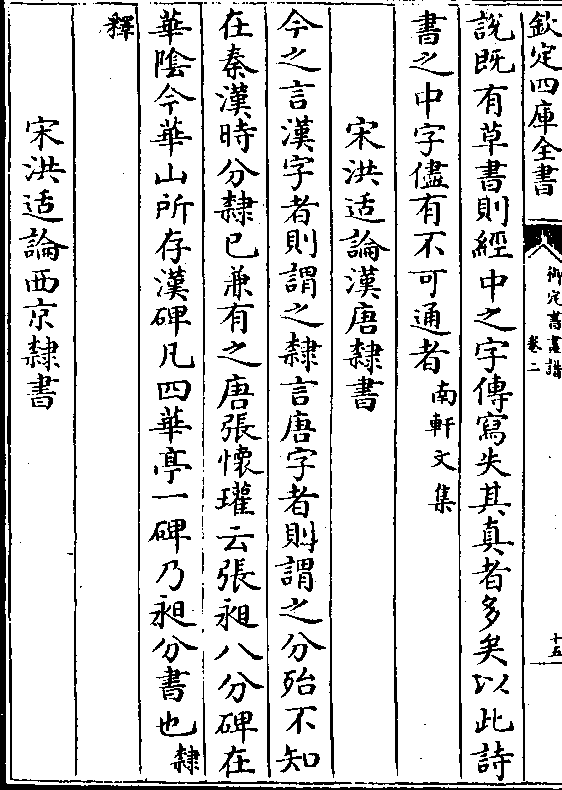 欽定四庫全書
御定書畫譜
卷二
十五
說既有草書則經中之字傳寫失其真者多矣以此詩
書之中字儘有不可通者南軒文集
宋洪适論漢唐隸書
今之言漢字者則謂之隸言唐字者則謂之分殆不知
在秦漢時分隸已兼有之唐張懷瓘云張昶八分碑在
華陰今華山所存漢碑凡四華亭一碑乃昶分書也隸
釋
宋洪适論西京隸書